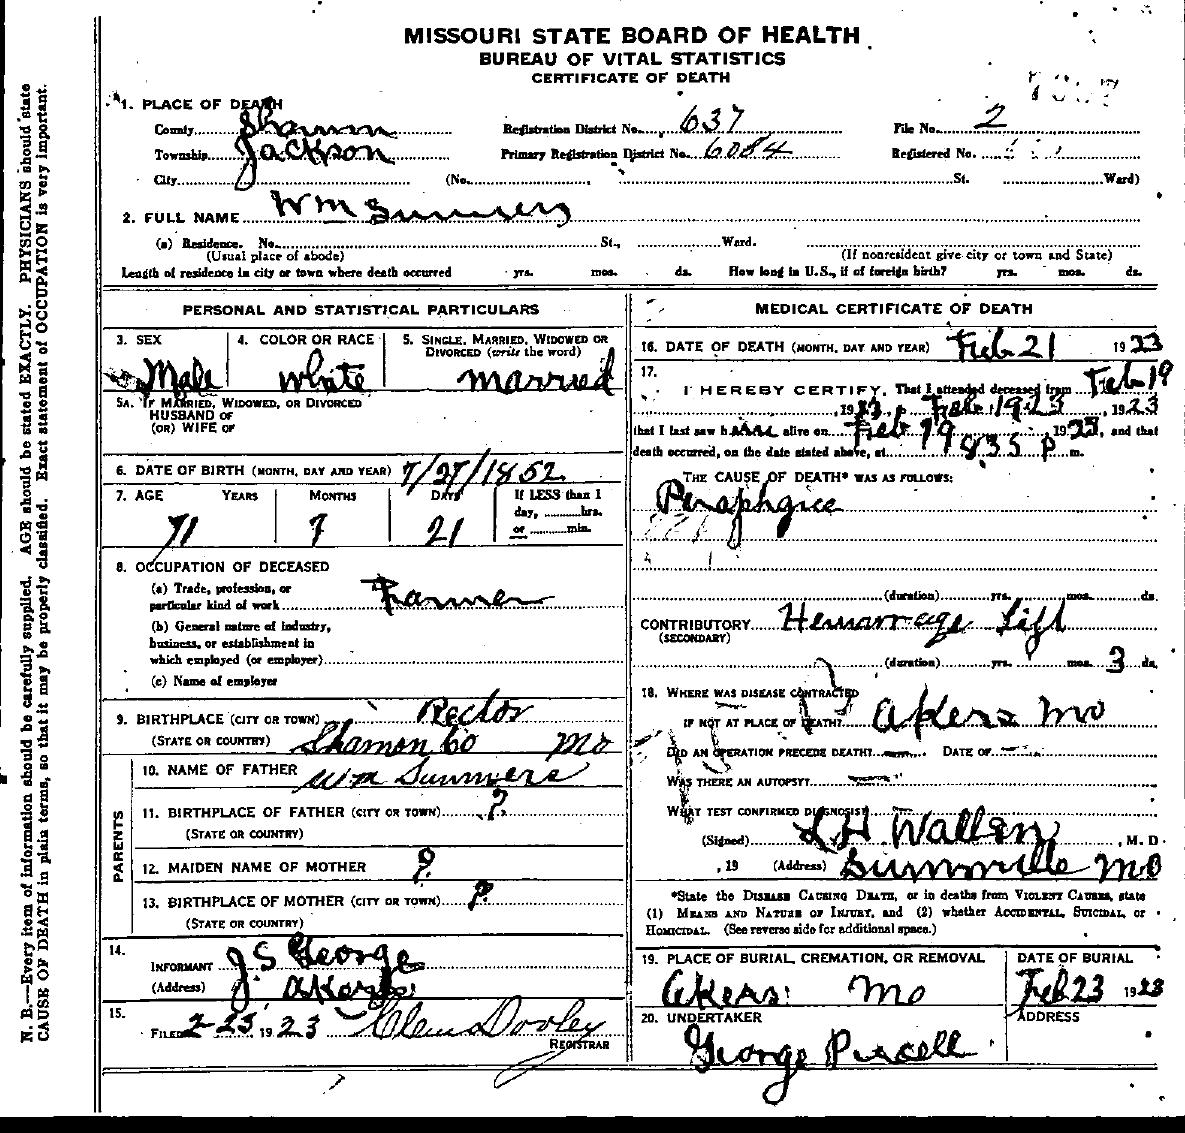 MISSOURI STATE BOARD OF HEALTH
BUREAU OF VITAL STATISTICS
CERTIFICATE OF DEATH
N. B.—Every item of information should be carefully supplied. AGE should be stated EXACTLY. PHYSICIANS should state
CAUSE OF DEATH in plain terms, so that it may be properly classified. Exact statement of OCCUPATION is very important.
1. PLACE OF DEATH
County Shannon Registration District No. 637 File No. 2
Township Jackson Primary Registration District No. 6084 Registered No.
City (No. St. Ward)
2. FULL NAME Wm Summers
(a) Residence. No. St., Ward.
(Usual place of abode) (If nonresident give city or town and State)
Length of residence in city or town where death occurred yrs. mos. ds. How long in U.S., if of foreign birth? yrs. mos. ds.
PERSONAL AND STATISTICAL PARTICULARS
3. SEX 4. COLOR OR RACE 5. SINGLE, MARRIED, WIDOWED OR
DIVORCED (write the word)
Male White Married
5A. IF MARRIED, WIDOWED, OR DIVORCED
HUSBAND OF
(OR) WIFE OF
6. DATE OF BIRTH (MONTH, DAY AND YEAR) 7/27/1852
7. AGE YEARS MONTHS DAYS If LESS than 1
day, hrs.
or min.
71 7 21
8. OCCUPATION OF DECEASED
(a) Trade, profession, or
particular kind of work Farmer
(b) General nature of industry,
business, or establishment in
which employed (or employer)
(c) Name of employer
9. BIRTHPLACE (CITY OR TOWN) Rector
(STATE OR COUNTRY) Shannon Co Mo
PARENTS
10. NAME OF FATHER Wm Summers
11. BIRTHPLACE OF FATHER (CITY OR TOWN) ?
(STATE OR COUNTRY)
12. MAIDEN NAME OF MOTHER ?
13. BIRTHPLACE OF MOTHER (CITY OR TOWN) ?
(STATE OR COUNTRY)
14.
INFORMANT J S George
(Address) Akers
15.
FILED 2-23, 1923 Dooley
REGISTRAR
MEDICAL CERTIFICATE OF DEATH
16. DATE OF DEATH (MONTH, DAY AND YEAR) Feb 21 1923
17.
I HEREBY CERTIFY, That I attended deceased from Feb 19
, 1923, Feb 1923, 1923
that I last saw h alive on Feb 19, 1923, and that
death occurred, on the date stated above, at 8.35 P m.
THE CAUSE OF DEATH* WAS AS FOLLOWS:
(duration) yrs. mos. ds.
CONTRIBUTORY Hemarrage Left
(SECONDARY)
(duration) yrs. mos. 3 ds.
18. WHERE WAS DISEASE CONTRACTED
IF NOT AT PLACE OF DEATH? Akers Mo
DID AN OPERATION PRECEDE DEATH? DATE OF
WAS THERE AN AUTOPSY?
WHAT TEST CONFIRMED DIAGNOSIS?
(Signed) L H Wallen, M. D.
, 19 (Address) Summville Mo
*State the DISEASE CAUSING DEATH, or in deaths from VIOLENT CAUSES, state
(1) MEANS AND NATURE OF INJURY, and (2) whether ACCIDENTAL, SUICIDAL, or
HOMICIDAL. (See reverse side for additional space.)
19. PLACE OF BURIAL, CREMATION, OR REMOVAL DATE OF BURIAL
Akers Mo Feb 23 1923
20. UNDERTAKER ADDRESS
George Purcell